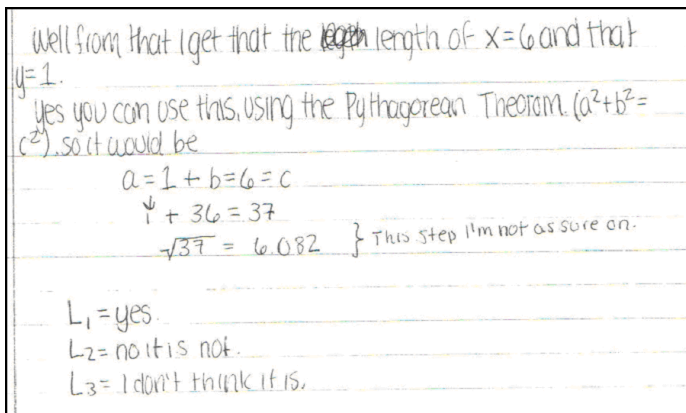 Well from that I get that the length of x=6 and that
y=1.
Yes you can use this, using the Pythagorean Theorom. (a²+b²=
c²). so it would be
a=1 + b=6 = c
↓
1 + 36 = 37
√37 = 6.082 } This step I'm not as sure on.
L₁ = yes.
L₂ = no it is not.
L₃ = I don't think it is.